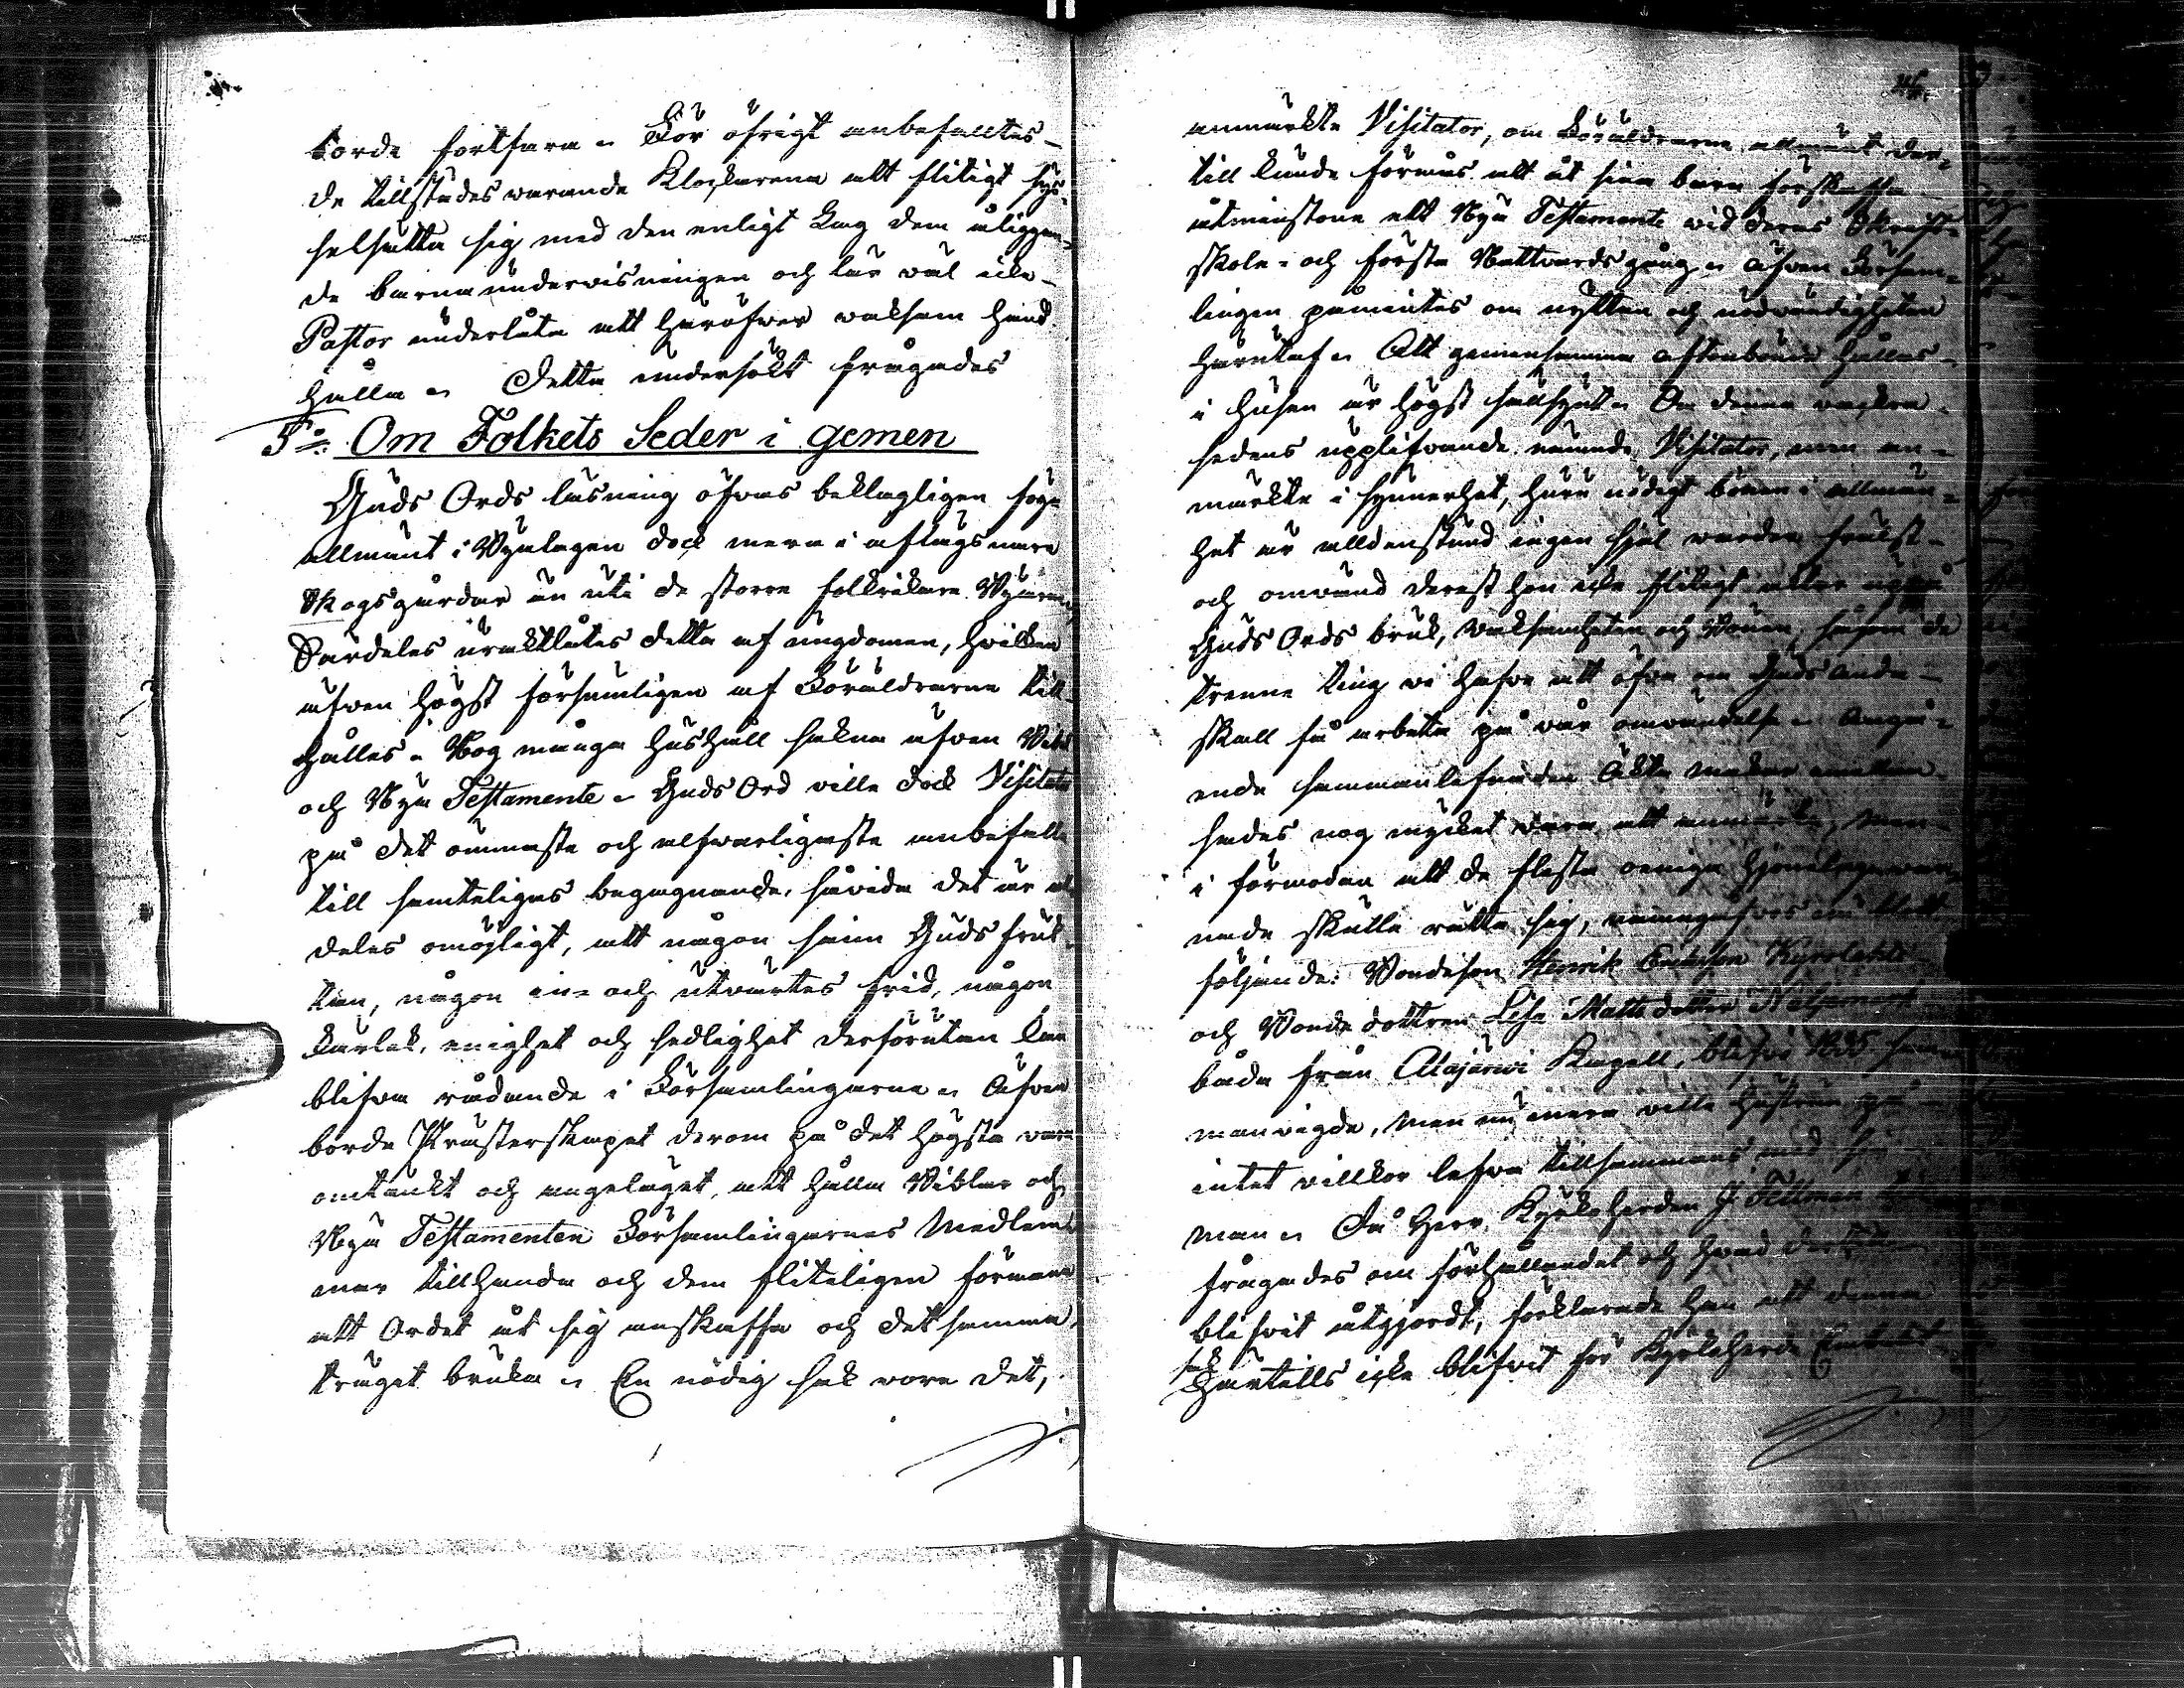 torde fortfara. För öfrigt anbefalltes
de tillstädes warande Klockarena att flitigt sys-
selsätta sig med den enligt Lag dem åliggan-
de barnaundervisningen och lär wäl icke
Pastor underlåta att häröfwer waksam hand
hålla. Detta undersökt frågades
5:o Om Folkets Seder i gemen
Guds Ords läsning öfvas beklagligen föga
allmänt i Byalagen dock mera i aflägsnare
Skogsgårdar än uti de större folkrikare Byarne,
Särdeles uraktlåtes detta af ungdomen, hvilken
äfwen högst försumligen af Föräldrarne till-
hålles. Nog många hushåll sakna äfwen Bibel
och Nya Testamente. Guds Ord wille dock Visitator
på det ömmaste och alfwarligaste anbefalla
till samteligas begagnande, såvida det är al-
deles omöjligt, att någon sann Guds fruk-
tan, någon in- och utvärtes frid, någon
kärlek, enighet och sedlighet derförutan kan
blifwa rådande i Församlingarne. Äfwen
borde Prästerskapet derom på det högsta vara
omtänkt och angeläget, att hålla Biblar och
Nya Testamenten Församlingarnes Medlem-
mar tillhanda och dem fliteligen förmana
att Ordet åt sig anskaffa och det samma
träget bruka. En nödig sak wore det,
anmärkte Visitator, om Föräldrarne allmänt der-
till kunde förmås att åt sina barn förskaffa
åtminstone ett Nya Testamente wid deras Skrift-
skole- och första Nattvardsgång. Äfwen Försam-
lingen påmintes om nyttan och nödwändigheten
häraf. Att gemensamma aftonböner hålles
i husen är högst sällsynt. Om denna wackra
sedens upplifvande nämnde Visitator, men an-
märkte i synnerhet, huru nödigt bönen i allmän-
het är alldenstund ingen själ warder frälst
och omvänd derest hon icke flitigt
Guds Ords bruk, waksamheten och bönen, såsom de
trenne ting wi hafwa att öfwa om Guds anda
skall få arbeta på wår omwändelse. Angå-
ende sammanlefnaden Äkta makar emellan
sades nog mycket wara att anmärka, men
i förmodan att de flesta oeniga
nade skulle rätta sig,
följande: Bondeson Henrik Eriksson Kyrolahti
och Bonde dottren Lisa Mattsdotter
båda från Alajärwi Kapell, blifvit 1835 sam-
manvigde, men nu mera wille hustrun på
intet willkor lefwa tillsammans med sin
man. Då Herr Kyrkoherden J. Fellman
frågades om förhållandet och hvad
blifvit åtgjordt, förklarade han att denna
sak härtills icke blifvit för Kyrkoherde Embetet